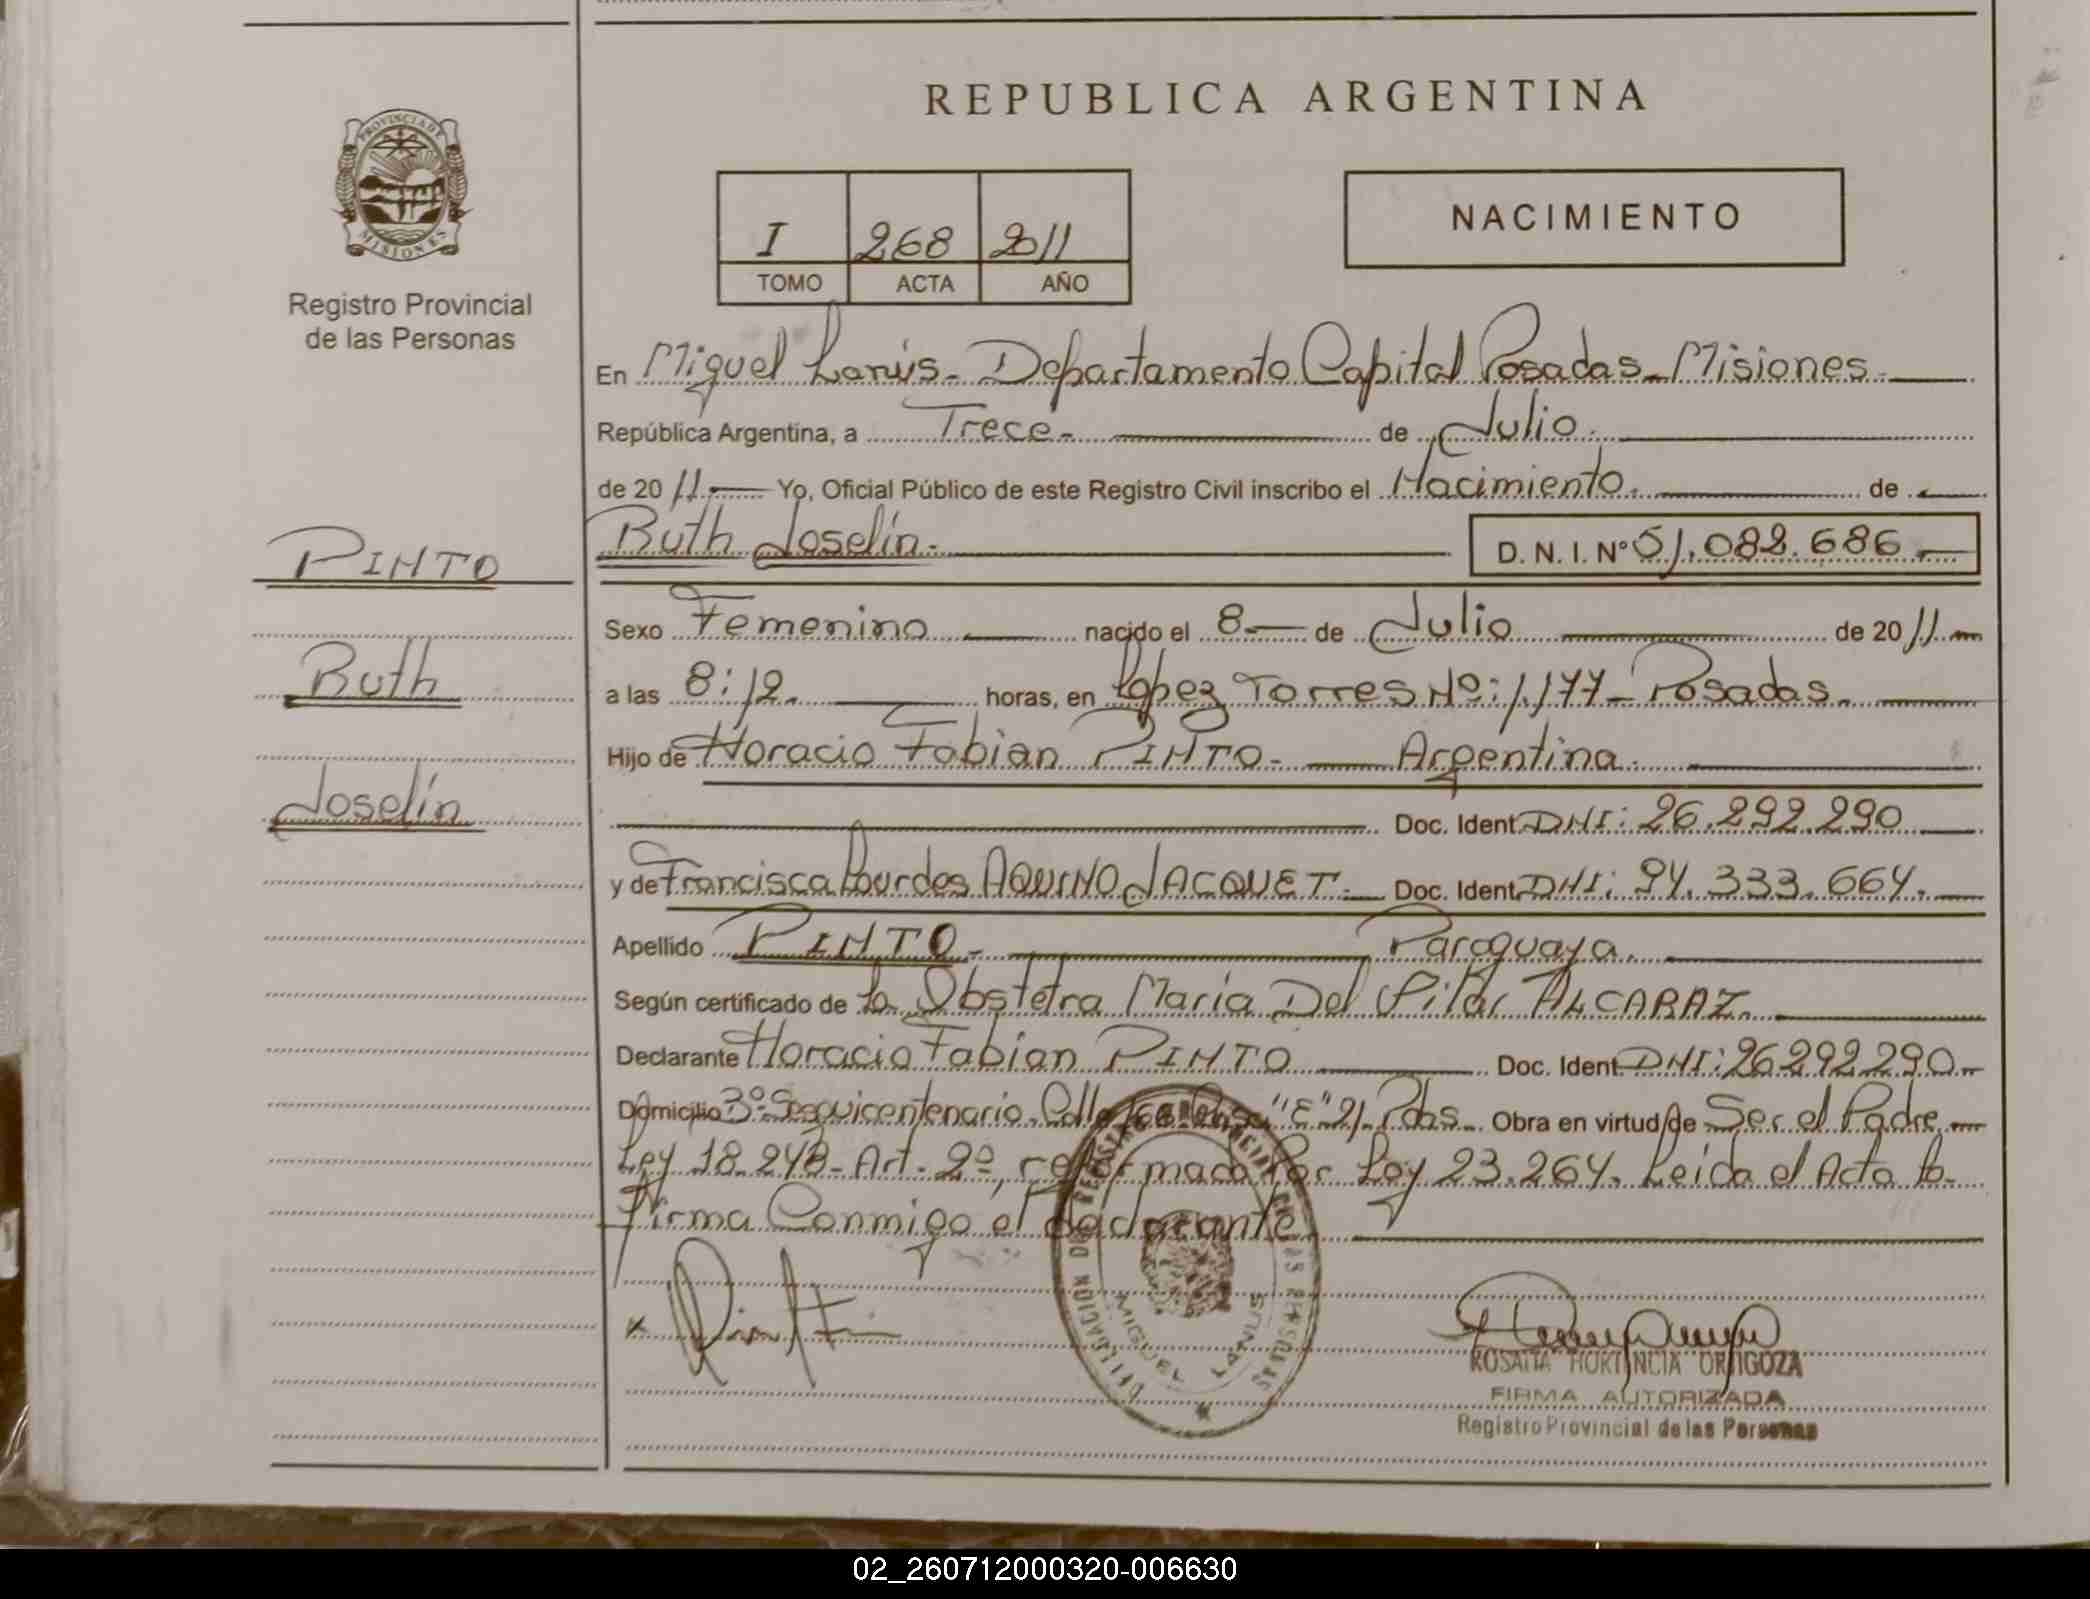 REPUBLICA ARGENTINA
PROVINCIA DE
MISIONES
Registro Provincial
de las Personas
I 268 2011
TOMO ACTA AÑO
NACIMIENTO
En Miguel Lanús - Departamento Capital Posadas - Misiones
República Argentina, a Trece - de Julio
de 2011 Yo, Oficial Público de este Registro Civil inscribo el Nacimiento. de
Ruth Joselín. D. N. I. Nº 51.082.686
PINTO
Ruth
Joselín
Sexo Femenino nacido el 8 de Julio de 2011
a las 8:12. horas, en López Torres Nº: 1.177 - Posadas.
Hijo de Horacio Fabian PINTO - Argentina.
Doc. Ident. DNI: 26.292.290
y de Francisca Lourdes AQUINO JACQUET. Doc. Ident. DNI: 94.333.664.
Apellido PINTO - Paraguaya.
Según certificado de La Obstetra María Del Pilar ALCARAZ.
Declarante Horacio Fabian PINTO Doc. Ident. DNI: 26.292.290
Domicilio Bº Sesquicentenario. Calle Casa "E" 21. Pdas. Obra en virtud de Ser el Padre
Ley 18.248 - Art. 2º, reformado Por Ley 23.264. Leída el Acta la
Firma Conmigo el Declarante
DELEGACION DEL REGISTRO PROVINCIAL DE LAS PERSONAS
MIGUEL LANUS
ROSANA HORTENCIA ORTIGOZA
FIRMA AUTORIZADA
Registro Provincial de las Personas
02_260712000320-006630